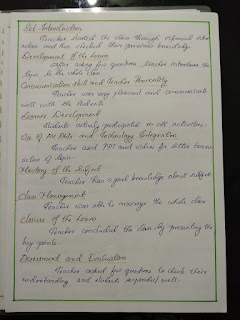 Set Introduction
Teacher started the class through informal inter
action and then checked their previous knowledge
Development of the Lesson
After asking few questions, teacher introduces the
topic to the whole class
Communication Skill and Teacher Personality
Teacher was very pleasant and communicate
well with the students
Learner Development
Students actively participated in all activities.
Use of AV Aids and Technology Integration
Teacher used PPT and video for better trans
action of topic.
Mastery of the Subject
Teacher has a good knowledge about subject
Class Management
Teacher was able to manage the whole class
Closure of the Lesson
Teacher concluded the class by presenting the
key points.
Assessment and Evaluation
Teacher asked few questions to check their
understanding and students responded well.